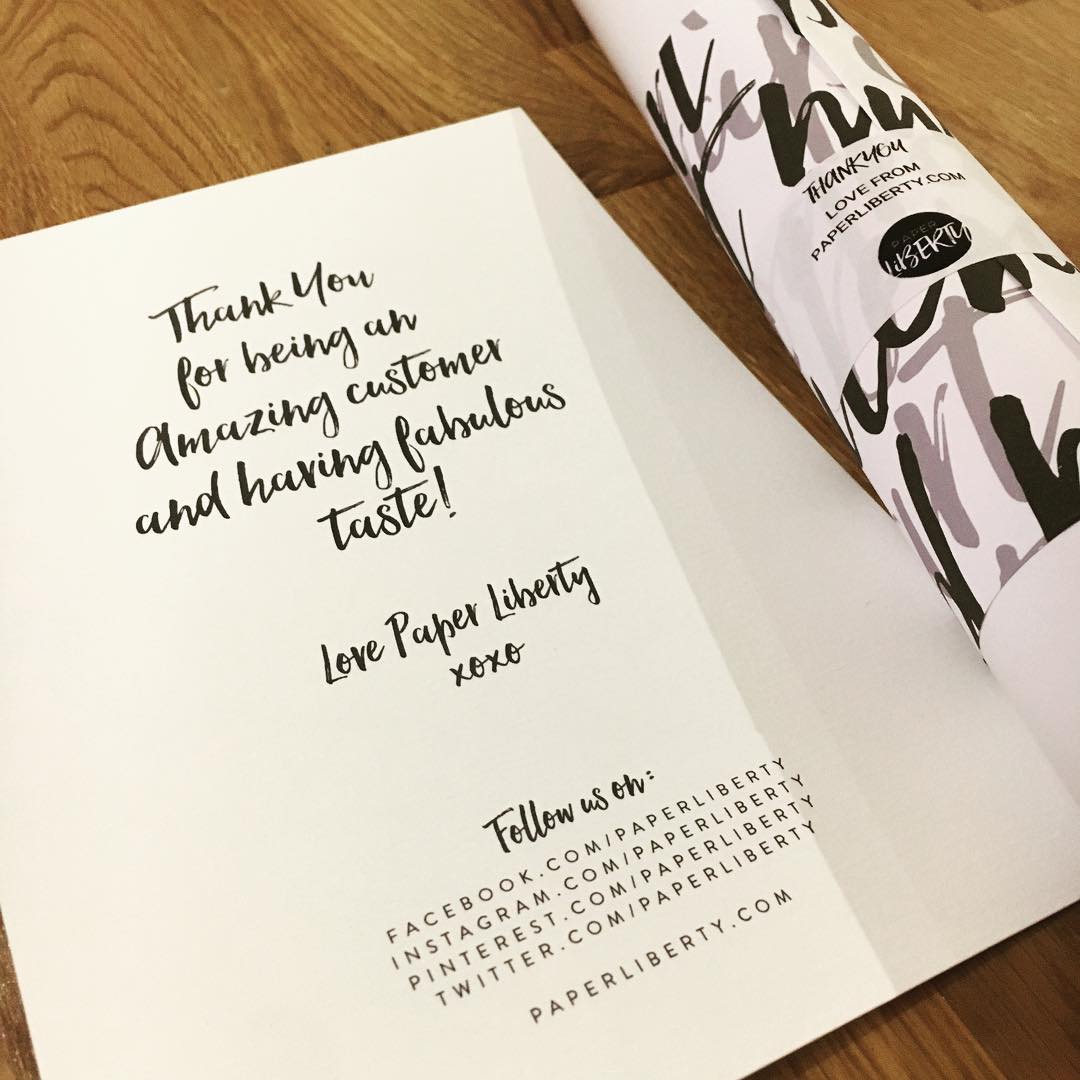 Thank You
for being an
Amazing customer
and having fabulous
taste!
Love Paper Liberty
xoxo
Follow us on:
FACEBOOK.COM/PAPERLIBERTY
INSTAGRAM.COM/PAPERLIBERTY
PINTEREST.COM/PAPERLIBERTY
TWITTER.COM/PAPERLIBERTY
PAPERLIBERTY.COM
THANKYOU
LOVE FROM
PAPERLIBERTY.COM
PAPER
LiBERTY